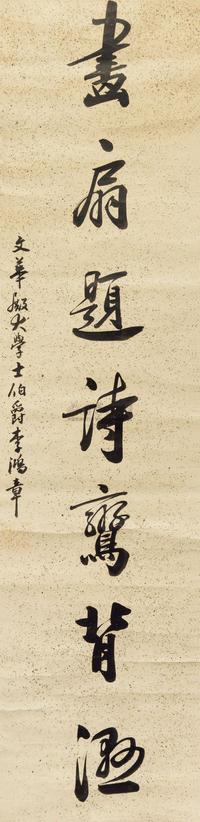 畫扇題詩鸞背濕
文華殿大學士伯爵李鴻章